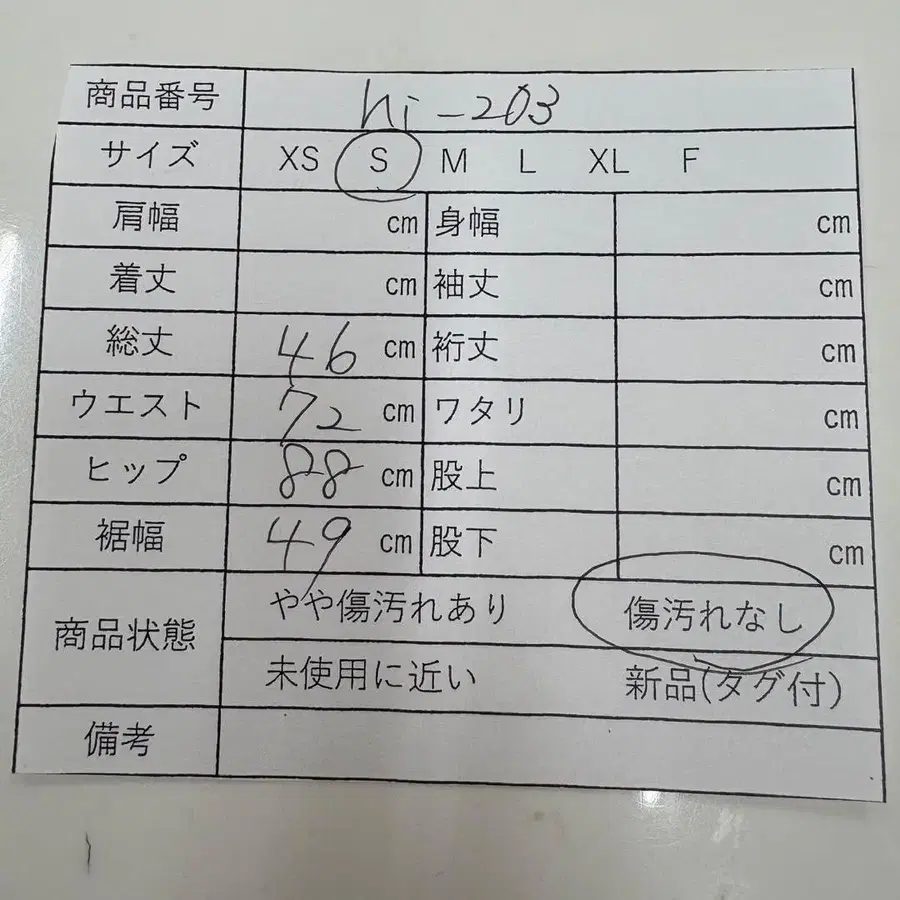 商品番号 hi-203
サイズ XS S M L XL F
肩幅 cm 身幅 cm
着丈 cm 袖丈 cm
総丈 46 cm 裄丈 cm
ウエスト 72 cm ワタリ cm
ヒップ 88 cm 股上 cm
裾幅 49 cm 股下 cm
商品状態 やや傷汚れあり 傷汚れなし
未使用に近い 新品(タグ付)
備考